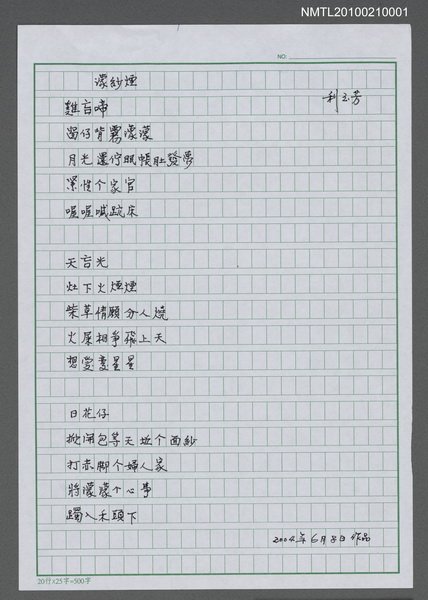 NMTL20100210001
NO:
濛紗煙
利玉芳
雞言啼
崗仔背霧濛濛
月光還佇眠帳肚發夢
潔性个家官
喔喔喊䟘床
天言光
灶下火煙煙
柴草情願分人燒
火屎相爭飛上天
想愛變星星
日花仔
掀開包等天地个面紗
打赤腳个婦人家
將濛濛个心事
躅入禾頭下
2004年6月8日作品
20行×25字=500字